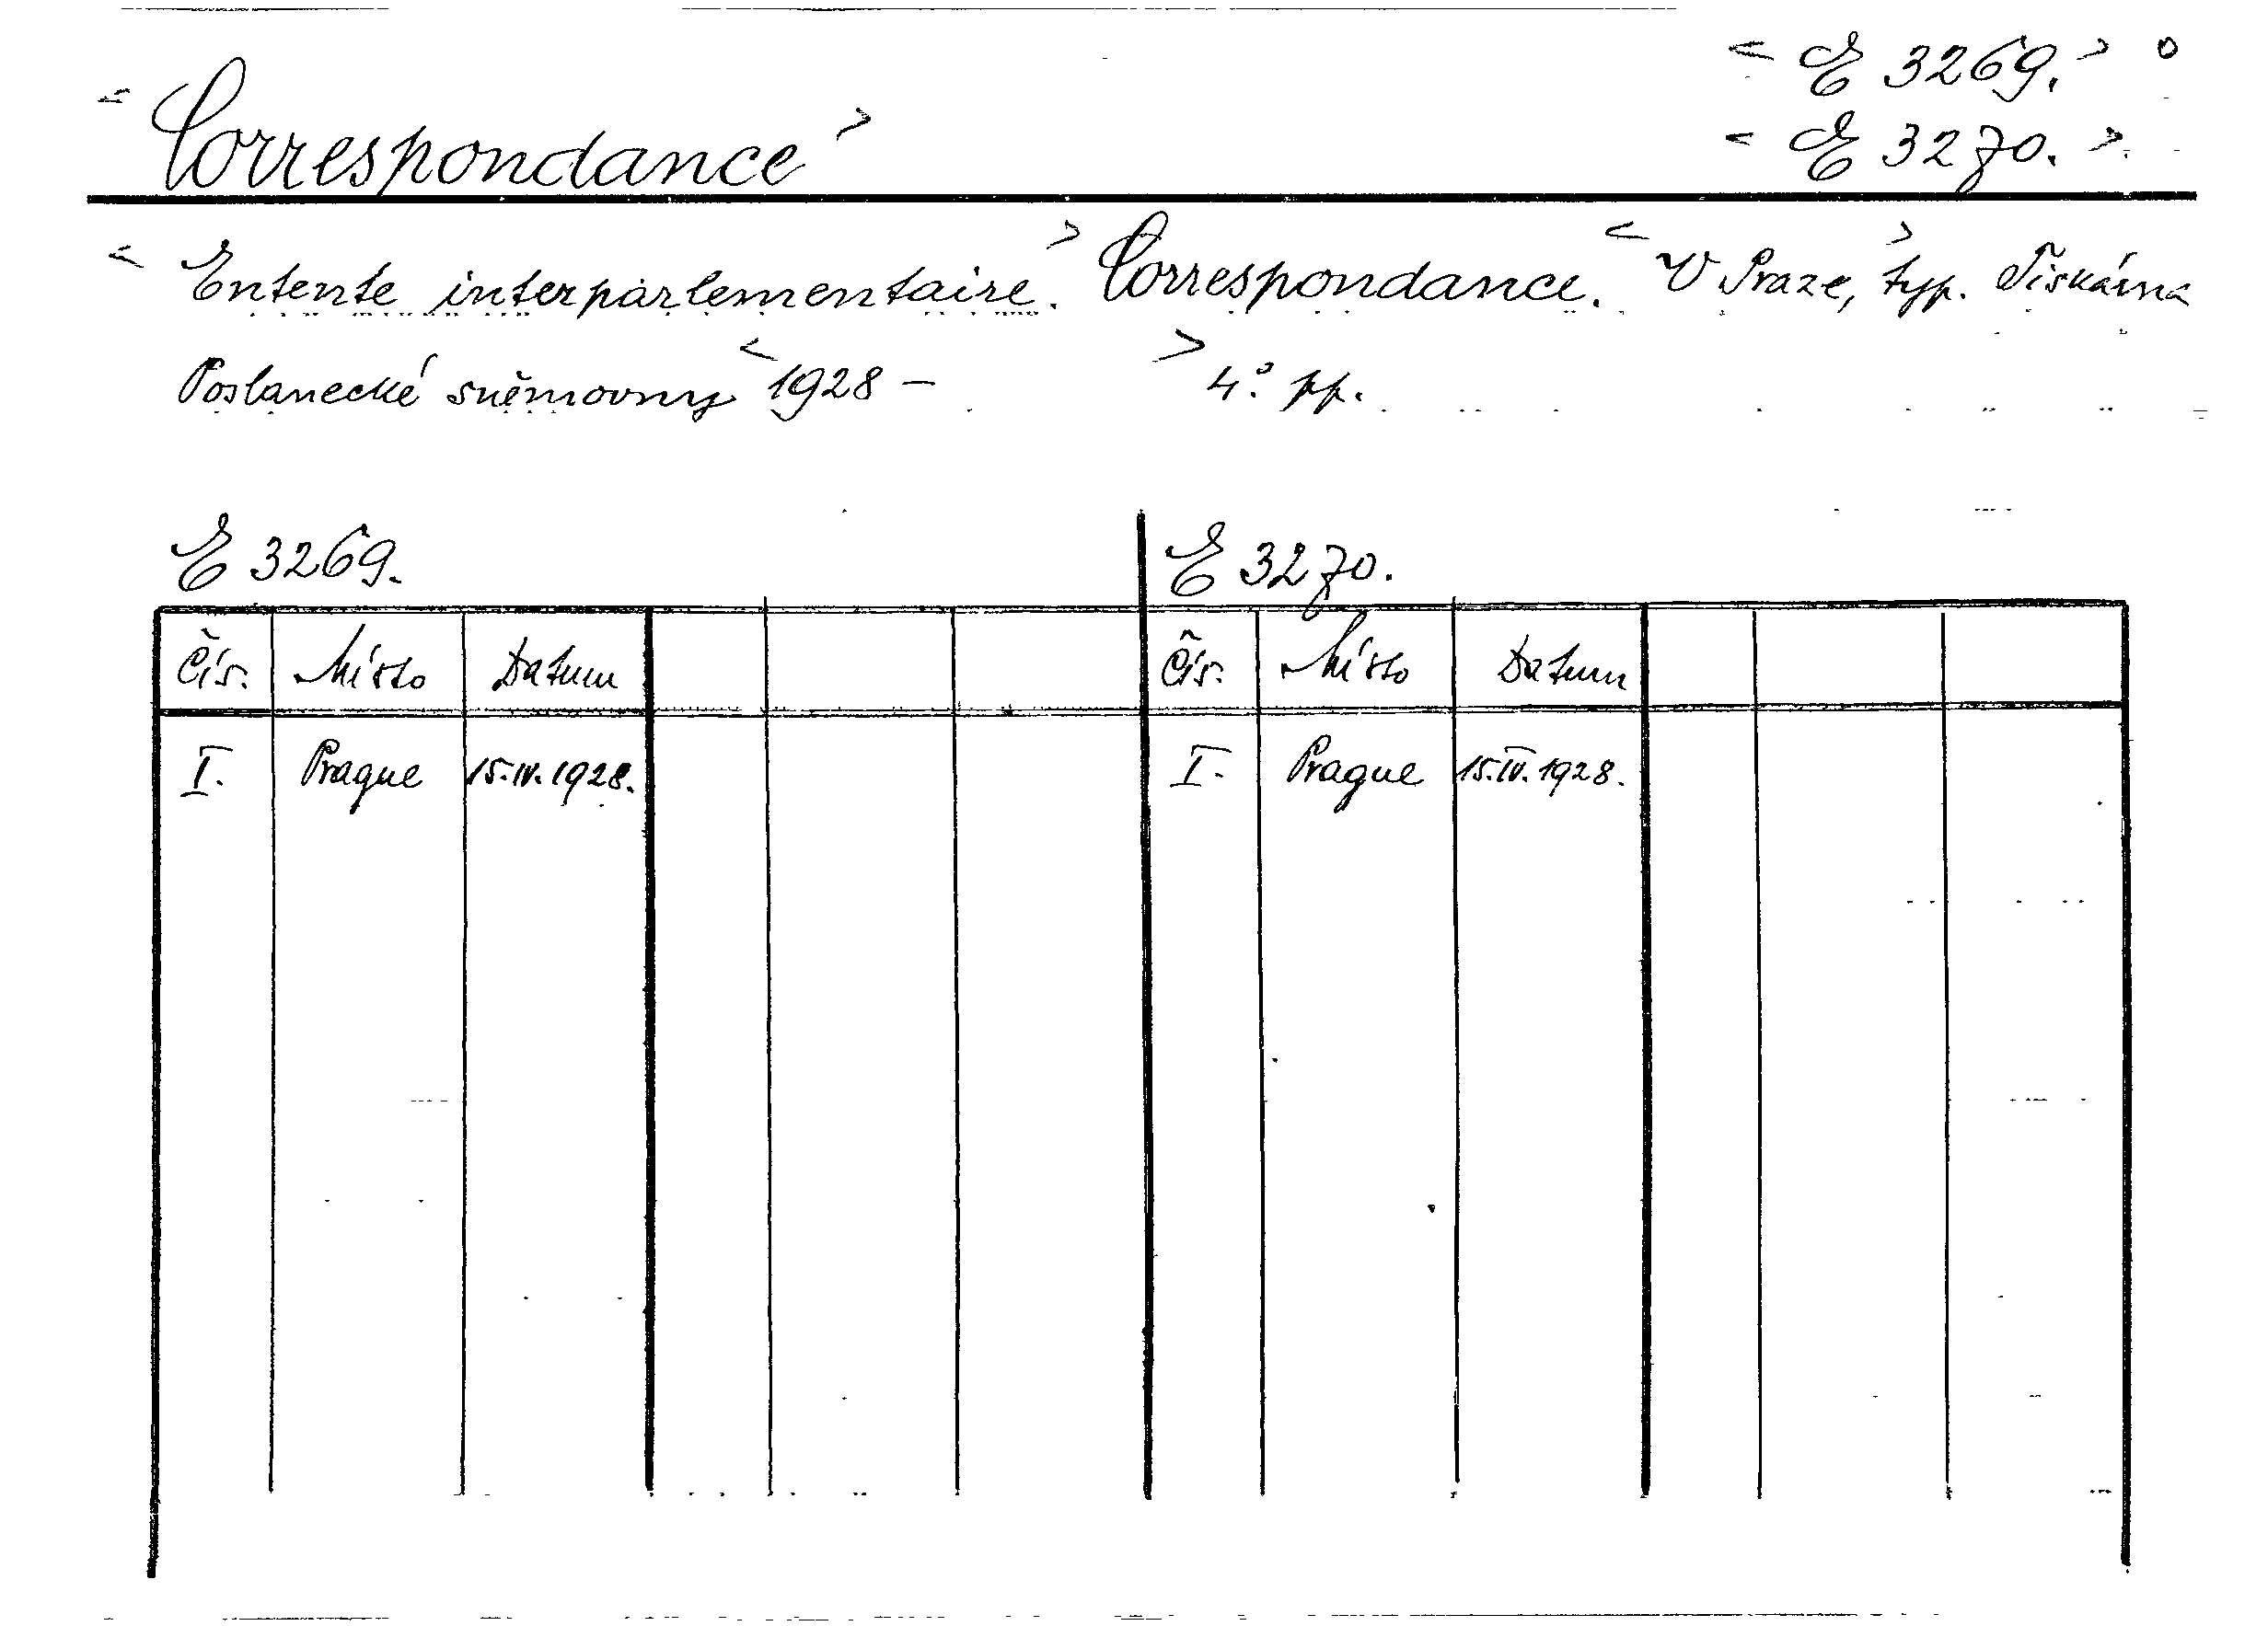 < E 3269. > o
< Correspondance >
< E 3270. >
< Entente interparlementaire. > Correspondance. < V Praze, > typ. Tiskárna
Poslanecké sněmovny < 1928 – > 4.° pp.
E 3269.
E 3270.
Čís. Místo Datum
Čís. Místo Datum
I. Prague 15.IV.1928.
I. Prague 15.IV.1928.